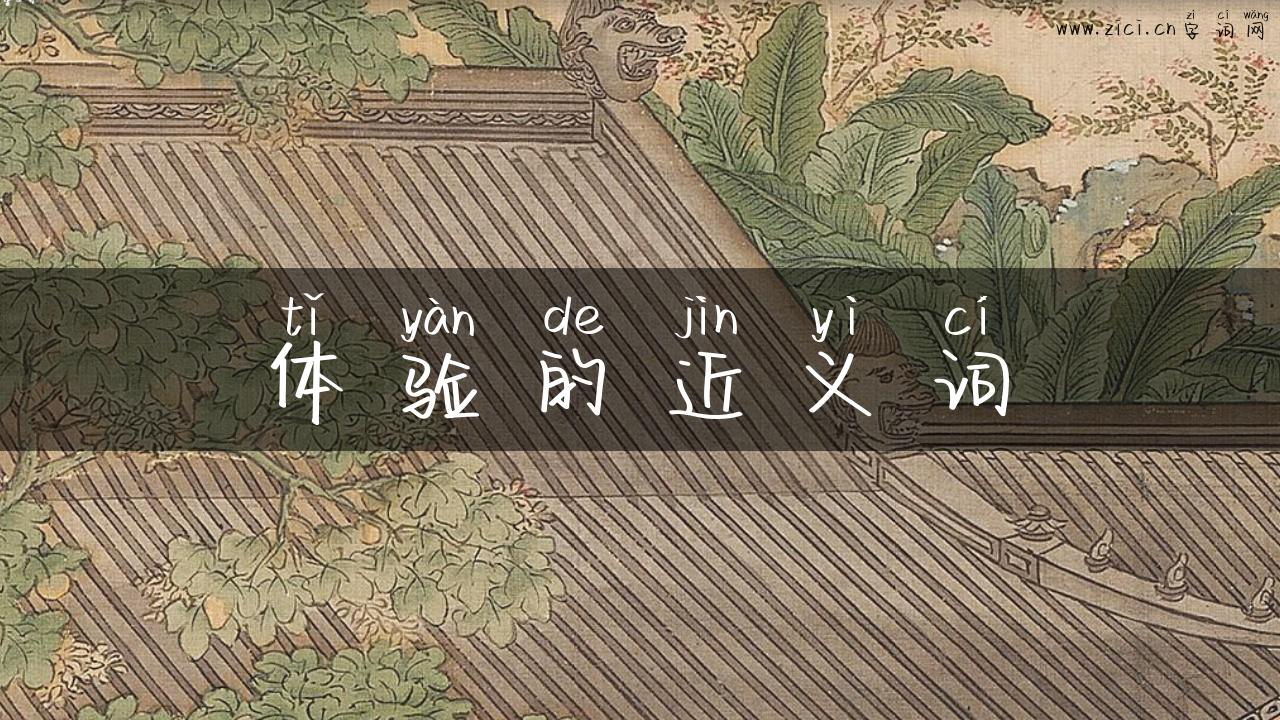 zì cí wǎng
www.zici.cn 字词网
tǐ yàn de jìn yì cí
体验的近义词